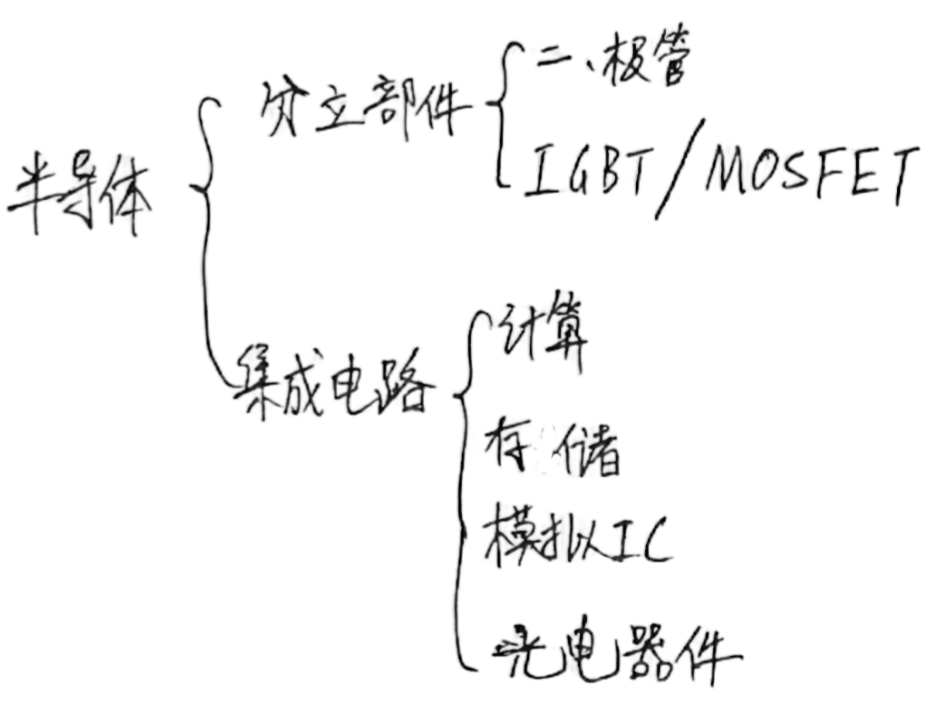 半导体
分立部件
二极管
IGBT/MOSFET
集成电路
计算
存储
模拟IC
光电器件